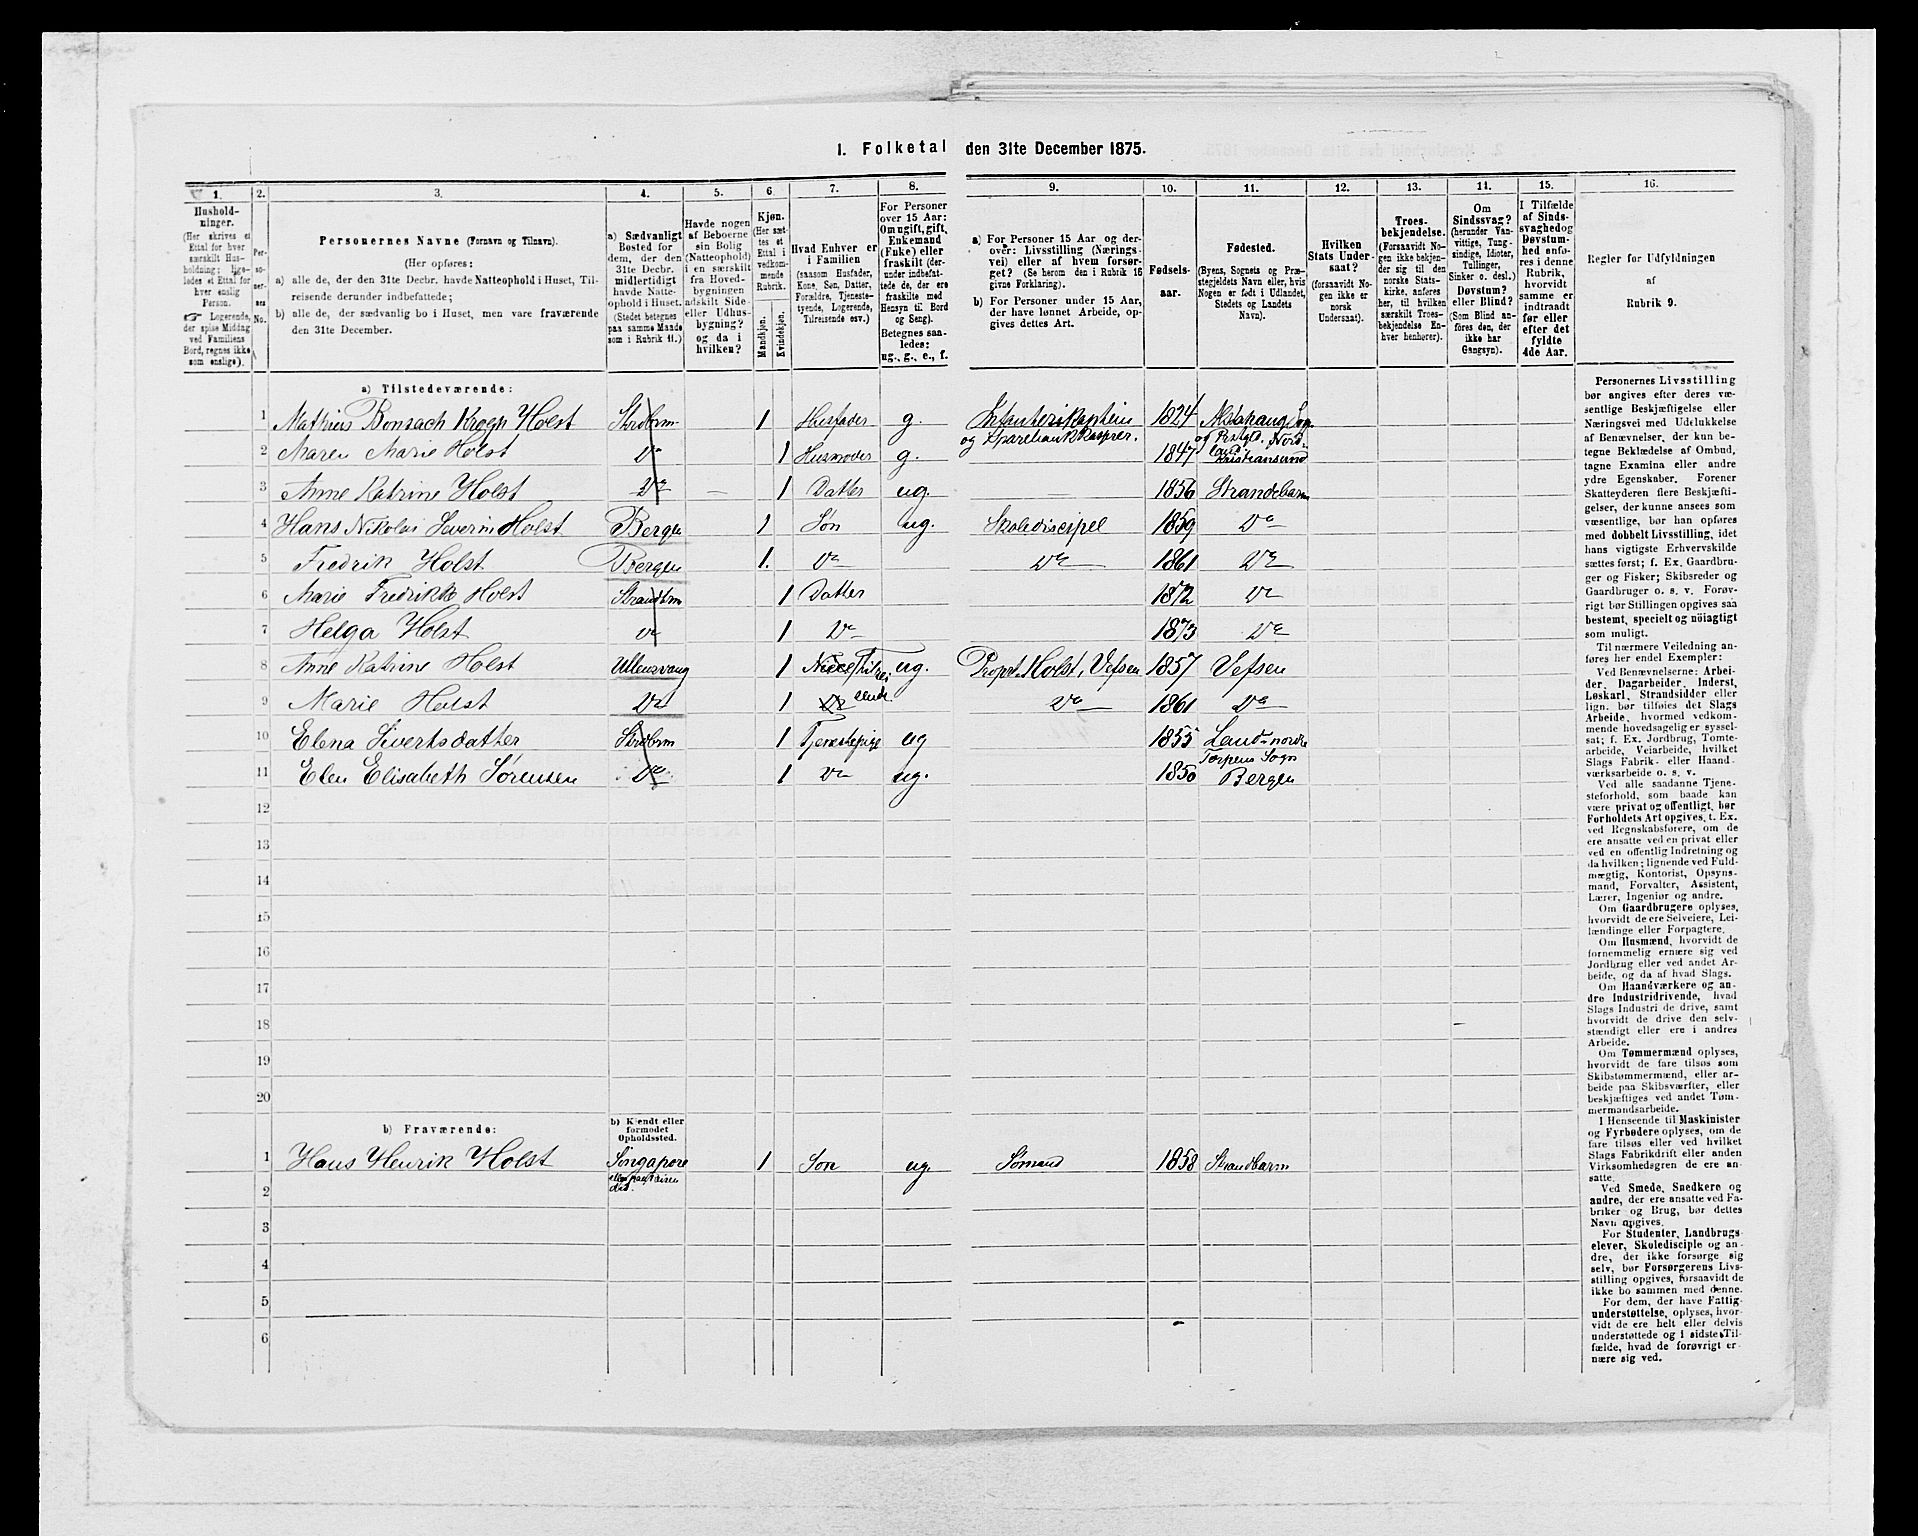 1. Folketal den 31te December 1875.
1. 2. 3. 4. 5. 6. 7. 8. 9. 10. 11. 12. 13. 14. 15. 16.
Hushold-
ninger.
(Her skrives et
Ettal for hver
særskilt Hus-
holdning; lige-
ledes et Ettal for
hver enslig
Person.
☞ Logerende,
der spise Middag
ved Familiens
Bord, regnes ikke
som enslige).
Per-
so-
ner-
nes
No.
Personernes Navne (Fornavn og Tilnavn).
(Her opføres:
a) alle de, der den 31te Decbr. havde Natteophold i Huset, Til-
reisende derunder indbefattede;
b) alle de, der sædvanlig bo i Huset, men vare fraværende
den 31te December.
a) Sædvanligt
Bosted for
dem, der den
31te Decbr.
midlertidigt
havde Natte-
ophold i Huset.
(Stedet betegnes
paa samme Maade
som i Rubrik 11.)
Havde nogen
af Beboerne
sin Bolig
(Natteophold)
i en særskilt
fra Hoved-
bygningen
adskilt Side-
eller Udhus-
bygning?
og da i
hvilken?
Kjøn.
(Her sæt-
tes et
Ettal i
vedkom-
mende
Rubrik.
Mandkjøn.
Kvindekjøn.
Hvad Enhver er
i Familien
(saasom Husfader,
Kone, Søn, Datter,
Forældre, Tjeneste-
tyende, Logerende,
Tilreisende osv.)
For Personer
over 15 Aar:
Om ugift, gift,
Enkemand
(Enke) eller
fraskilt (der-
under indbefat-
tede de, der ere
fraskilte med
Hensyn til Bord
og Seng).
Betegnes saa-
ledes:
ug., g., e., f.
a) For Personer 15 Aar og der-
over: Livsstilling (Nærings-
vei) eller af hvem forsør-
get? (Se herom den i Rubrik 16
givne Forklaring).
b) For Personer under 15 Aar,
der have lønnet Arbeide, op-
gives dettes Art.
Fødsels-
aar.
Fødested.
(Byens, Sognets og Præ-
stegjeldets Navn eller, hvis
Nogen er født i Udlandet,
Stedets og Landets
Navn).
Hvilken
Stats Under-
saat?
(forsaavidt No-
gen ikke er
norsk
Undersaat).
Troes-
bekjendelse.
(Forsaavidt No-
gen ikke bekjen-
der sig til den
norske Stats-
kirke, anføres
her, til hvilken
særskilt Troes-
bekjendelse En-
hver henhører).
Om
Sindssvag?
(herunder Van-
vittige, Tung-
sindige, Idioter,
Tullinger,
Sinker o. desl.)
Døvstum?
eller Blind?
(Som Blind an-
føres den, der
ikke har
Gangsyn).
I Tilfælde
af Sinds-
svaghed og
Døvstum-
hed anfø-
res i denne
Rubrik,
hvorvidt
samme er
indtraadt
før eller
efter det
fyldte
4de Aar.
Regler for Udfyldningen
af
Rubrik 9.
a) Tilstedeværende:
1 Mathias Bonsach Krogh Holst Strdbrm 1 Husfader g. Infanterikaptein og Sparebankkasserer. 1824 Alstahaug Sogn og Prstgld. Nordland
2 Maren Marie Holst Do 1 Husmoder g. 1847 Kristiansund
3 Anne Katrine Holst Do — 1 Datter ug. — 1856 Strandebarm
4 Hans Nikolai Severin Holst Bergen 1 Søn ug. Skolediscipel 1859 Do
5 Fredrik Holst Bergen 1. Do Do 1861 Do
6 Marie Fredrikke Holst Strandbrm 1 Datter 1872 Do
7 Helga Holst Do 1 Do 1873 Do
8 Anne Katrine Holst Ullensvang 1 Niece, Tilreisende ug. Propst Holst, Vefsen 1857 Vefsen
9 Marie Holst Do 1 Do Do 1861 Do
10 Elena Sivertsdatter Strdbrm 1 Tjenestepige ug 1855 Land nordre Torpens Sogn
11 Elen Elisabeth Sørensen Do 1 Do ug. 1850 Bergen
12
13
14
15
16
17
18
19
20
b) Fraværende:
b) Kjendt eller
formodet
Opholdssted.
1 Hans Henrik Holst Singapore eller paa Reisen 1 Søn ug. Sømand 1858 Strandbarm
2
3
4
5
6
Personernes Livsstilling
bør angives efter deres væ-
sentlige Beskjæftigelse eller
Næringsvei med Udelukkelse
af Benævnelser, der kun be-
tegne Beklædelse af Ombud,
tagne Examina eller andre
ydre Egenskaber. Forener
Skatteyderen flere Beskjæfti-
gelser, der kunne ansees som
væsentlige, bør han opføres
med dobbelt Livsstilling, idet
hans vigtigste Erhvervskilde
sættes først; f. Ex. Gaardbru-
ger og Fisker; Skibsreder og
Gaardbruger o. s. v. Forøv-
rigt bør Stillingen opgives saa
bestemt, specielt og nöiagtigt
som muligt.
Til nærmere Veiledning an-
føres her endel Exempler:
Ved Benævnelserne: Arbei-
der, Dagarbeider, Inderst,
Løskarl, Strandsidder eller
lign. bør tilføies det Slags
Arbeide, hvormed vedkom-
mende hovedsagelig er syssel-
sat; f. Ex. Jordbrug, Tomte-
arbeide, Veiarbeide, hvilket
Slags Fabrik- eller Haand-
værksarbeide o. s. v.
Ved alle saadanne Tjene-
steforhold, som baade kan
være privat og offentligt, bør
Forholdets Art opgives, t. Ex.
ved Regnskabsførere, om de
ere ansatte ved en privat eller
ved en offentlig Indretning og
da hvilken; lignende ved Fuld-
mægtig, Kontorist, Opsyns-
mand, Forvalter, Assistent,
Lærer, Ingeniør og andre.
Om Gaardbrugere oplyses,
hvorvidt de ere Selveiere, Lei-
lændinge eller Forpagtere.
Om Husmænd, hvorvidt de
fornemmelig ernære sig ved
Jordbrug eller ved andet Ar-
beide, og da af hvad Slags.
Om Haandværkere og an-
dre Industridrivende, hvad
Slags Industri de drive, samt
hvorvidt de drive den selv-
stændigt eller ere i andres
Arbeide.
Om Tømmermænd oplyses,
hvorvidt de fare tilsøs som
Skibstømmermænd, eller ar-
beide paa Skibsværfter, eller
beskjæftiges ved andet Tøm-
mermandsarbeide.
I Henseende til Maskinister
og Fyrbødere oplyses, om de
fare tilsøs eller ved hvilket
Slags Fabrikdrift eller anden
Virksomhedsgren de ere an-
satte.
Ved Smede, Snedkere og
andre, der ere ansatte ved Fa-
briker og Brug, bør dettes
Navn opgives.
For Studenter, Landbrugs-
elever, Skoledisciple og an-
dre, der ikke forsørge sig
selv, bør Forsørgerens Livs-
stilling opgives, forsaavidt de
ikke bo sammen med denne.
For dem, der have Fattig-
understøttelse, oplyses, hvor-
vidt de ere helt eller delvis
understøttede og i sidste Til-
fælde, hvad de forøvrigt er-
nære sig ved.